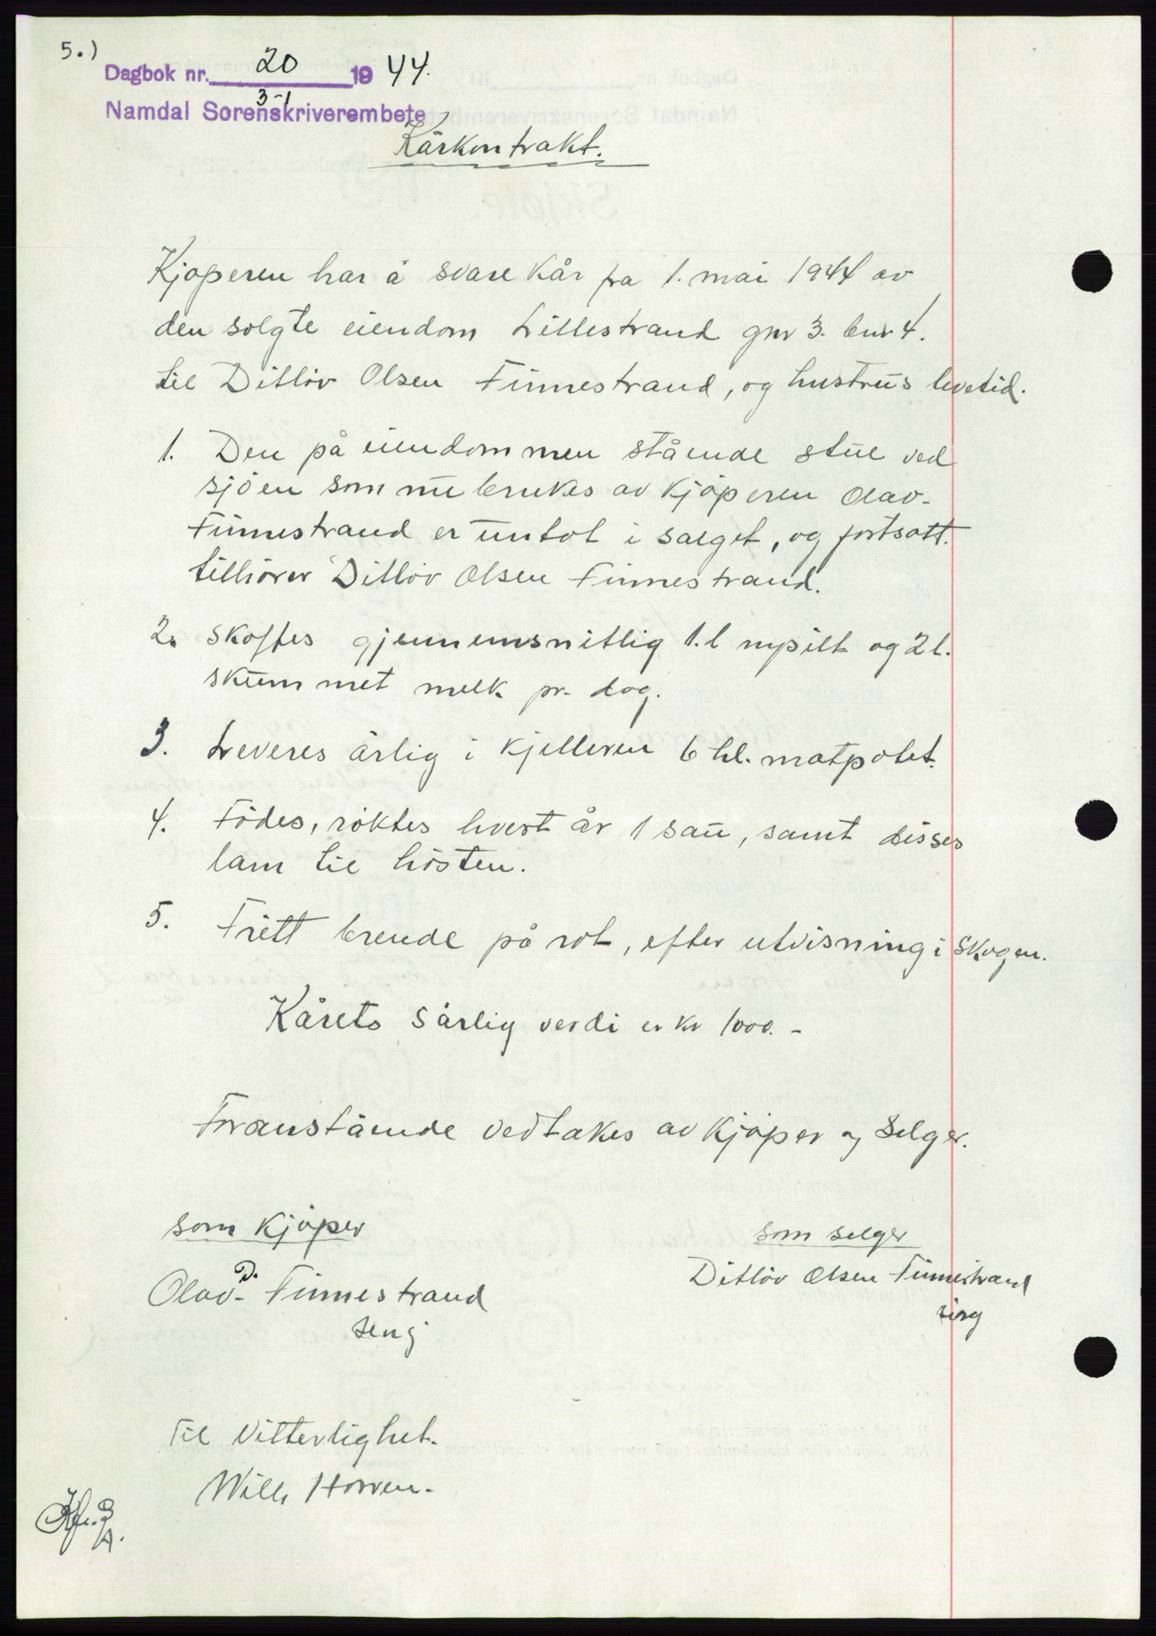 5.)
Dagbok nr. 20 1944.
3-1
Namdal Sorenskriverembete
Kårkontrakt.
Kjøperen har å svare kår fra 1. mai 1944 av
den solgte eiendom Lillestrand gnr 3. bnr 4.
til Ditløv Olsen Finnestrand, og hustrus levetid.
1. Den på eiendommen stående stue ved
sjøen som nu brukes av kjøperen Olav-
Finnestrand er untat i salget, og fortsatt.
tilhører Ditløv Olsen Finnestrand.
2. Skaffes gjennemsnitlig 1.l nysilt og 2 l.
skummet melk pr. dag.
3. Leveres årlig i kjelleren 6 hl. matpotet.
4. Födes, röktes hvert år 1 sau, samt disses
lam til hösten.
5. Fritt brende på rot, efter utvisning i Skogen.
Kårets 5 årlig verdi er kr 1000.-
Foranstående vedtakes av Kjøper og Selger.
som Kjøper
som selger
Olav D. Finnestrand
Ditløv Olsen Finnestrand
Til Vitterlighet.